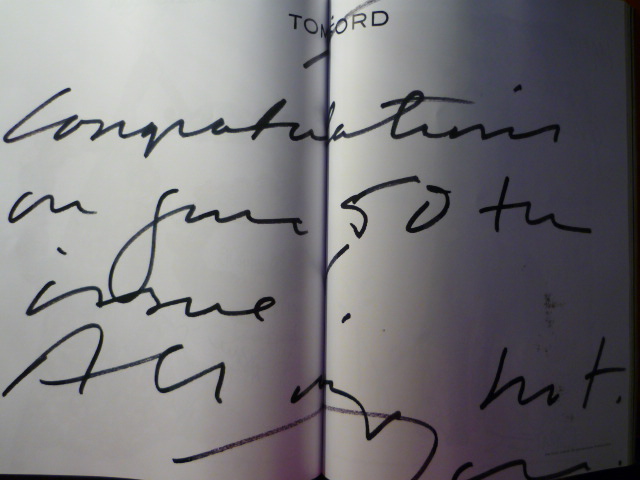 TOM FORD
Congratulations
on your 50th
issue!
All my best.
Tom.